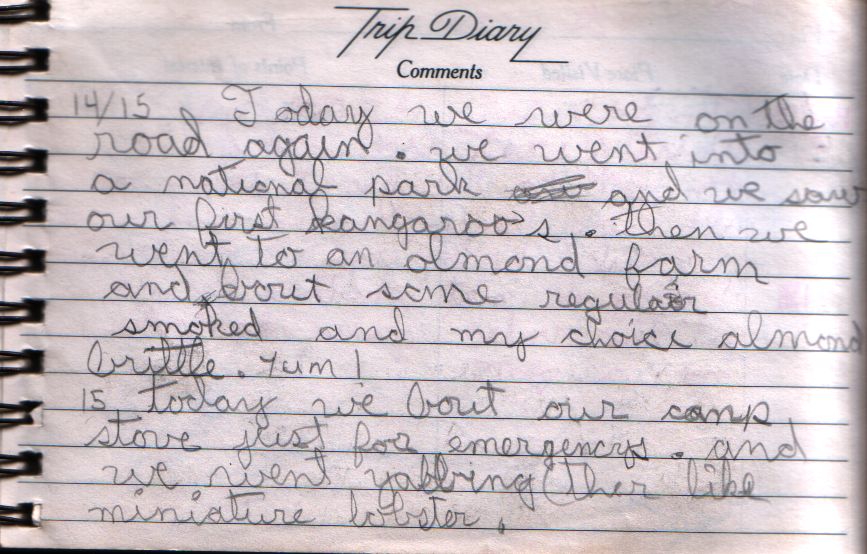 Trip Diary
Comments
14/15 Today we were on the
road again. we went into
a national park and we saw
our first kangaroo's. then we
went to an almond farm
and bout some regular
smoked and my choice almond
brittle. Yum!
15 today we bout our camp
stove just for emergencys. and
we went yabbying (ther like
miniature lobster.